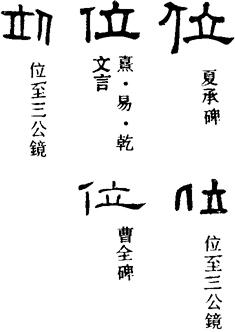 位
夏承碑
位
熹・易・乾
文言
位
位至三公鏡
位
位至三公鏡
位
曹全碑